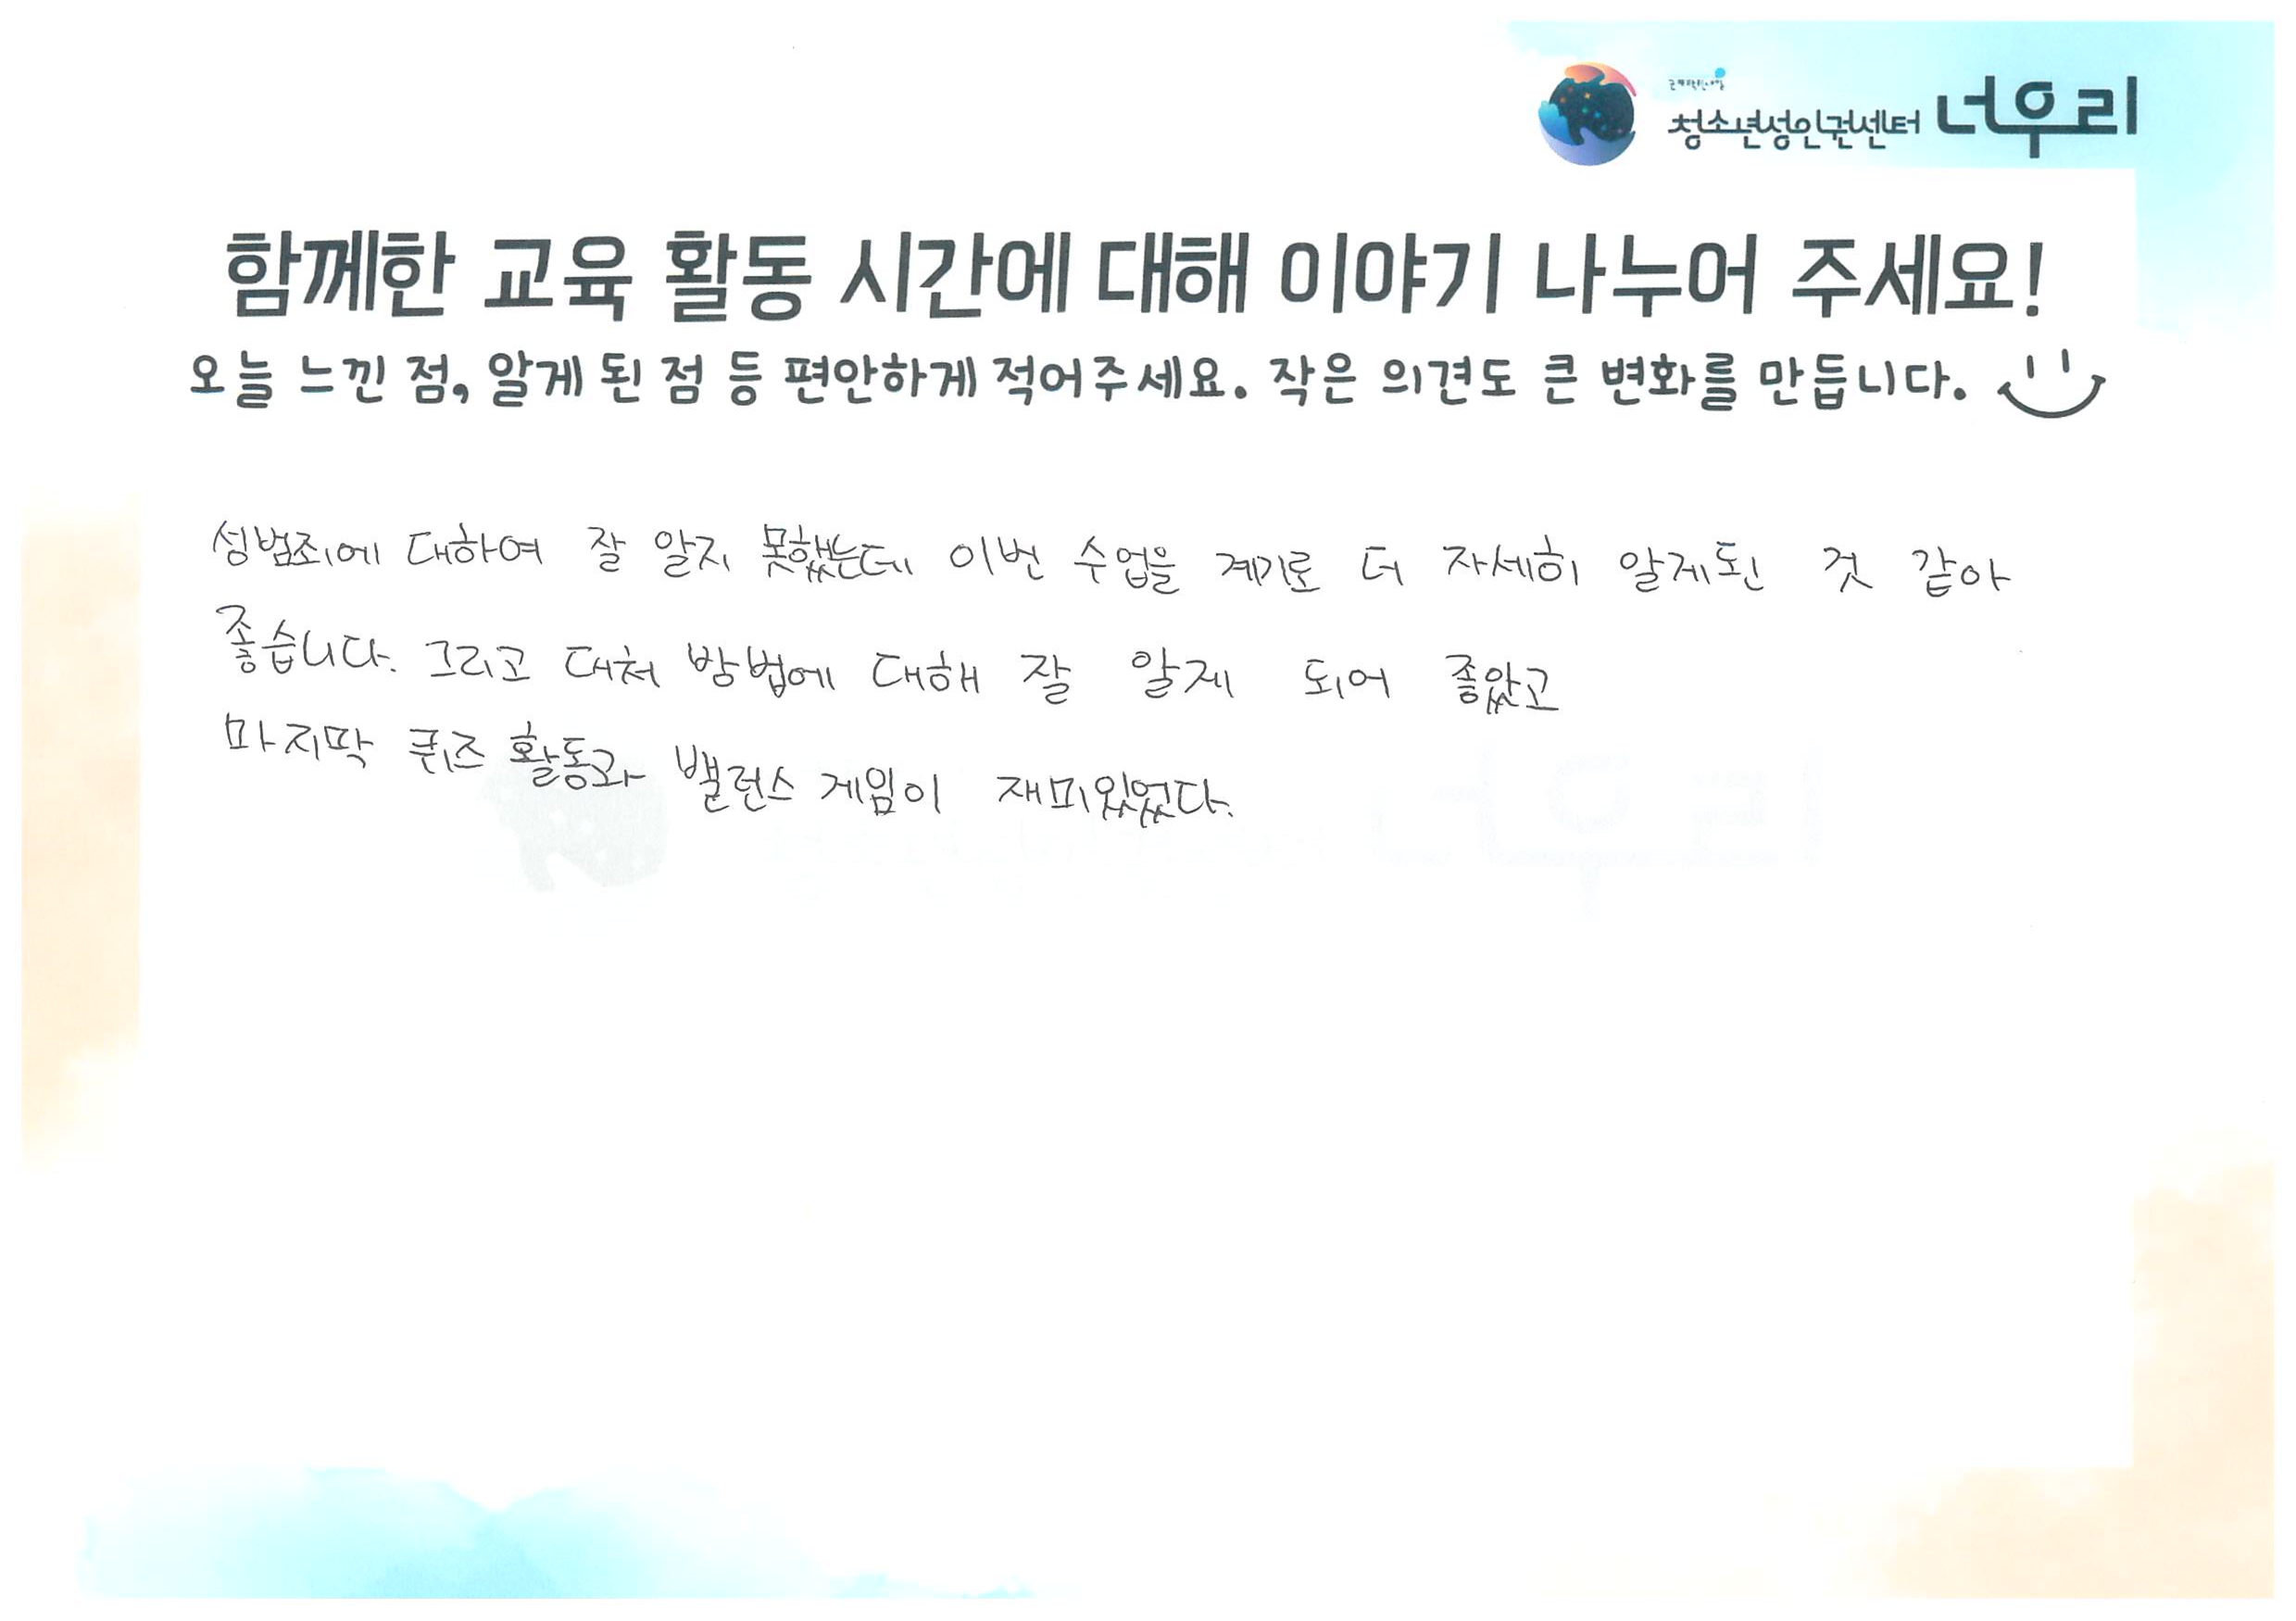 청소년성인권센터 너우리
함께한 교육 활동 시간에 대해 이야기 나누어 주세요!
오늘 느낀 점, 알게 된 점 등 편안하게 적어주세요. 작은 의견도 큰 변화를 만듭니다.
성범죄에 대하여 잘 알지 못했는데 이번 수업을 계기로 더 자세히 알게된 것 같아
좋습니다. 그리고 대처 방법에 대해 잘 알게 되어 좋았고
마지막 퀴즈 활동과 밸런스 게임이 재미있었다.